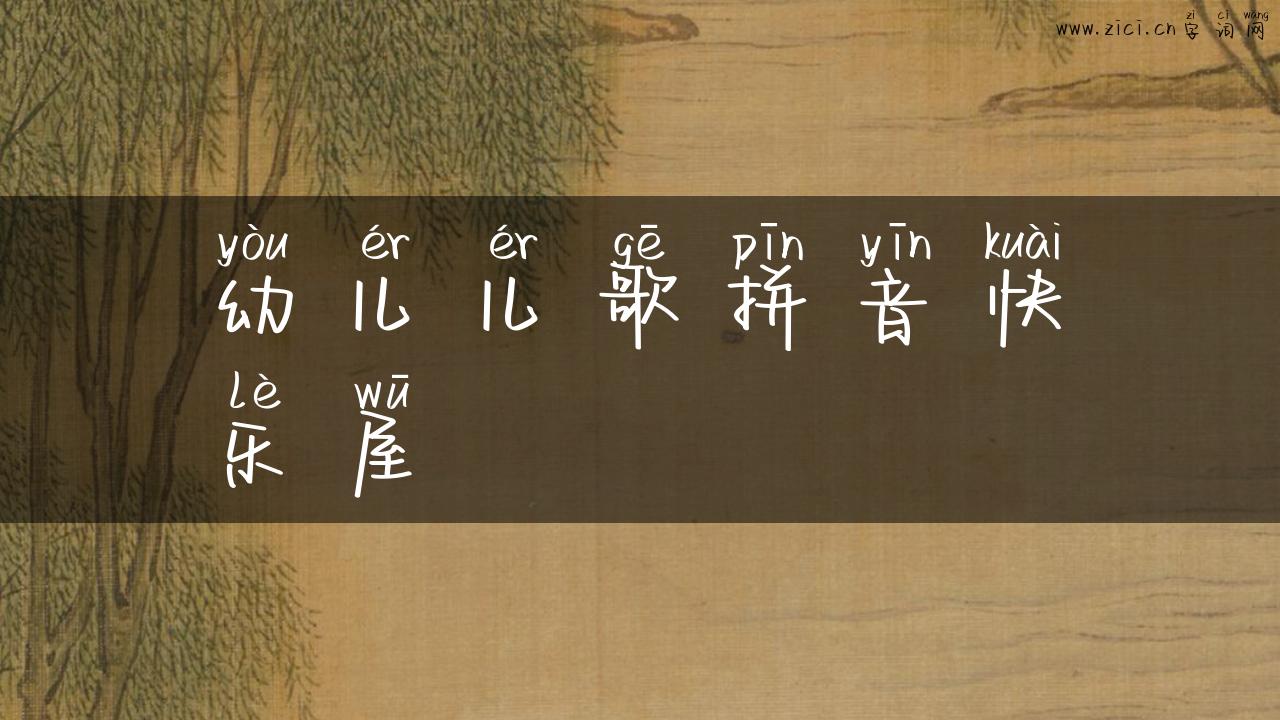 zì cí wǎng
www.zici.cn 字词网
yòu ér ér gē pīn yīn kuài
幼儿儿歌拼音快
lè wū
乐屋